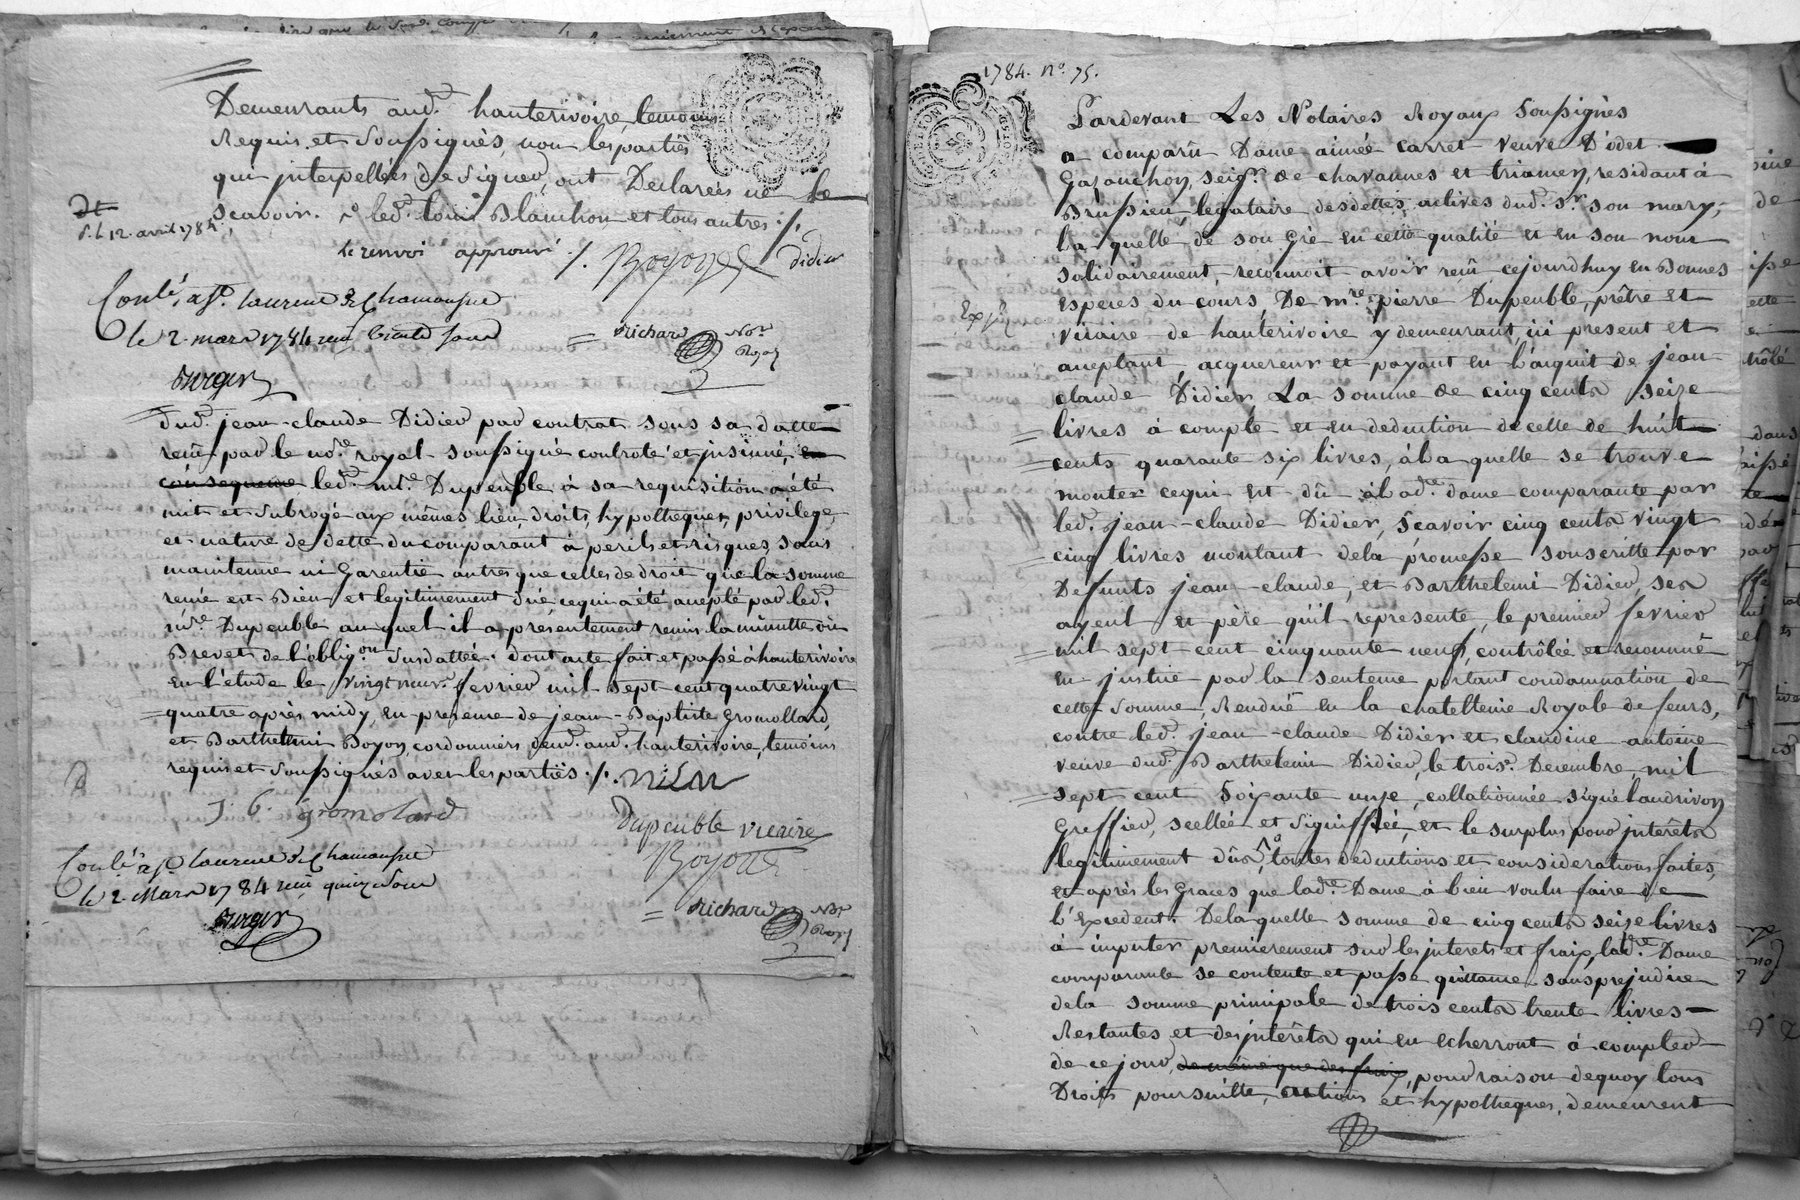 Demeurants aud.t hauterivoire, temoins
Requis, et soussignés, non les parties
qui interpellées de signer, ont Declarées ne le
scavoir. led.t louis Blanchon et tous autres ./.
d.t 12. avril 1784,
le renvoi approuvé ./. Boyon Didier
Conlé, a St. laurent de Chamousset
le 2. mars 1784 reçu trente sous
= Richard No.re Royal
Burger
Dud.t jean-claude Didier par contrat sous sa datte
reçu par le no.re royal soussigné controlé et insinué, en
consequence led.t m.re Dupeuble à sa requisition a été
mit et subrogé aux mêmes lieu, droits, hypothèques, privilege,
et nature de dette du comparant à perils et risques, sans
maintenue ni Garentie autres que celles de droit que la somme
remie est Bien et legitimement dûe, ce qui a été accepté par led.t
m.re Dupeuble auquel il a presentement remis la minutte ou
Brevet de l'oblig.on susdattée. Dont acte fait et passé à hauterivoire
en l'étude le vingt neuv.e fevrier mil sept cent quatre vingt
quatre après midy, en presence de jean-Baptiste Gromollard,
et Barthelemi Boyon, cordonniers demt. aud.t hauterivoire, temoins
requis et soussignés avec les parties ./.
J. B. Gromolard
Dupeuble vicaire
Boyon
Conlé, a St. laurent de Chamousset
le 2. Mars 1784 reçu quinze sous
= Richard No.re Royal
Burger
1784. n.o 75.
Pardevant Les Notaires Royaux soussignés
a comparû Dame aimée carret veuve D'odet
Gazanchon, seig.r de chavannes et triamen, residant à
Brussieu, legataire des dettes actives dud.t s.r son mary,
La quelle de son Gré en cette qualité et en son nom
solidairement, reconnoit avoir reçu cejourdhuy en Bonnes
especes du cours, De m.re pierre Dupeuble, prêtre et
Exp.é
vicaire de hauterivoire y demeurant, ici present et
acceptant, acquereur et payant en l'acquit de jean
claude Didier, La somme de cinq cents seize
livres à compte et en deduction de celle de huit
cents quarante six livres, à la quelle se trouve
monter ce qui est dû à lad.e dame comparante par
led.t jean-claude Didier, scavoir cinq cents vingt
cinq livres montant de la promesse souscritte par
Defunts jean-claude, et Barthelemi Didier, ses
ayeul et père qu'il represente, le premier fevrier
mil sept cent cinquante neuf, contrôlée et reconnuë
en justice par la sentence portant condamnation de
cette somme, Renduë en la chatellenie Royale de feurs,
contre led.t jean-claude Didier et claudine antoine
veuve dud.t Barthelemi Didier, le trois.e Decembre mil
sept cent soixante unze, collationnée signé Landrivon
Greffier, scellée et signiffiée, et le surplus pour interêts
legitimement dûs, toutes deductions et considerations faites,
et après les Graces que lad.e Dame à bien voulu faire de
l'Excedent. De la quelle somme de cinq cents seize livres
à imputer premierement sur les interets et fraix, lad.e Dame
comparante se contente et passe quittance sans prejudice
de la somme principale de trois cents trente livres
Restantes et des interêts qui en echerront à compter
de ce jour, de même que des fraix, pour raison dequoy tous
Droits poursuitte, actions et hypotheques, demeurent